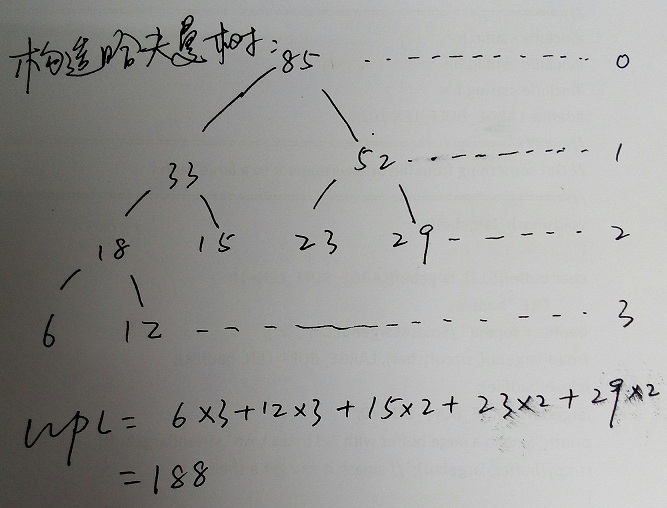 构造哈夫曼树:
85 ------------ 0
33 52 ------------ 1
18 15 23 29 ------ 2
6 12 ------------ 3
WPL= 6×3+12×3+15×2+23×2+29×2
=188